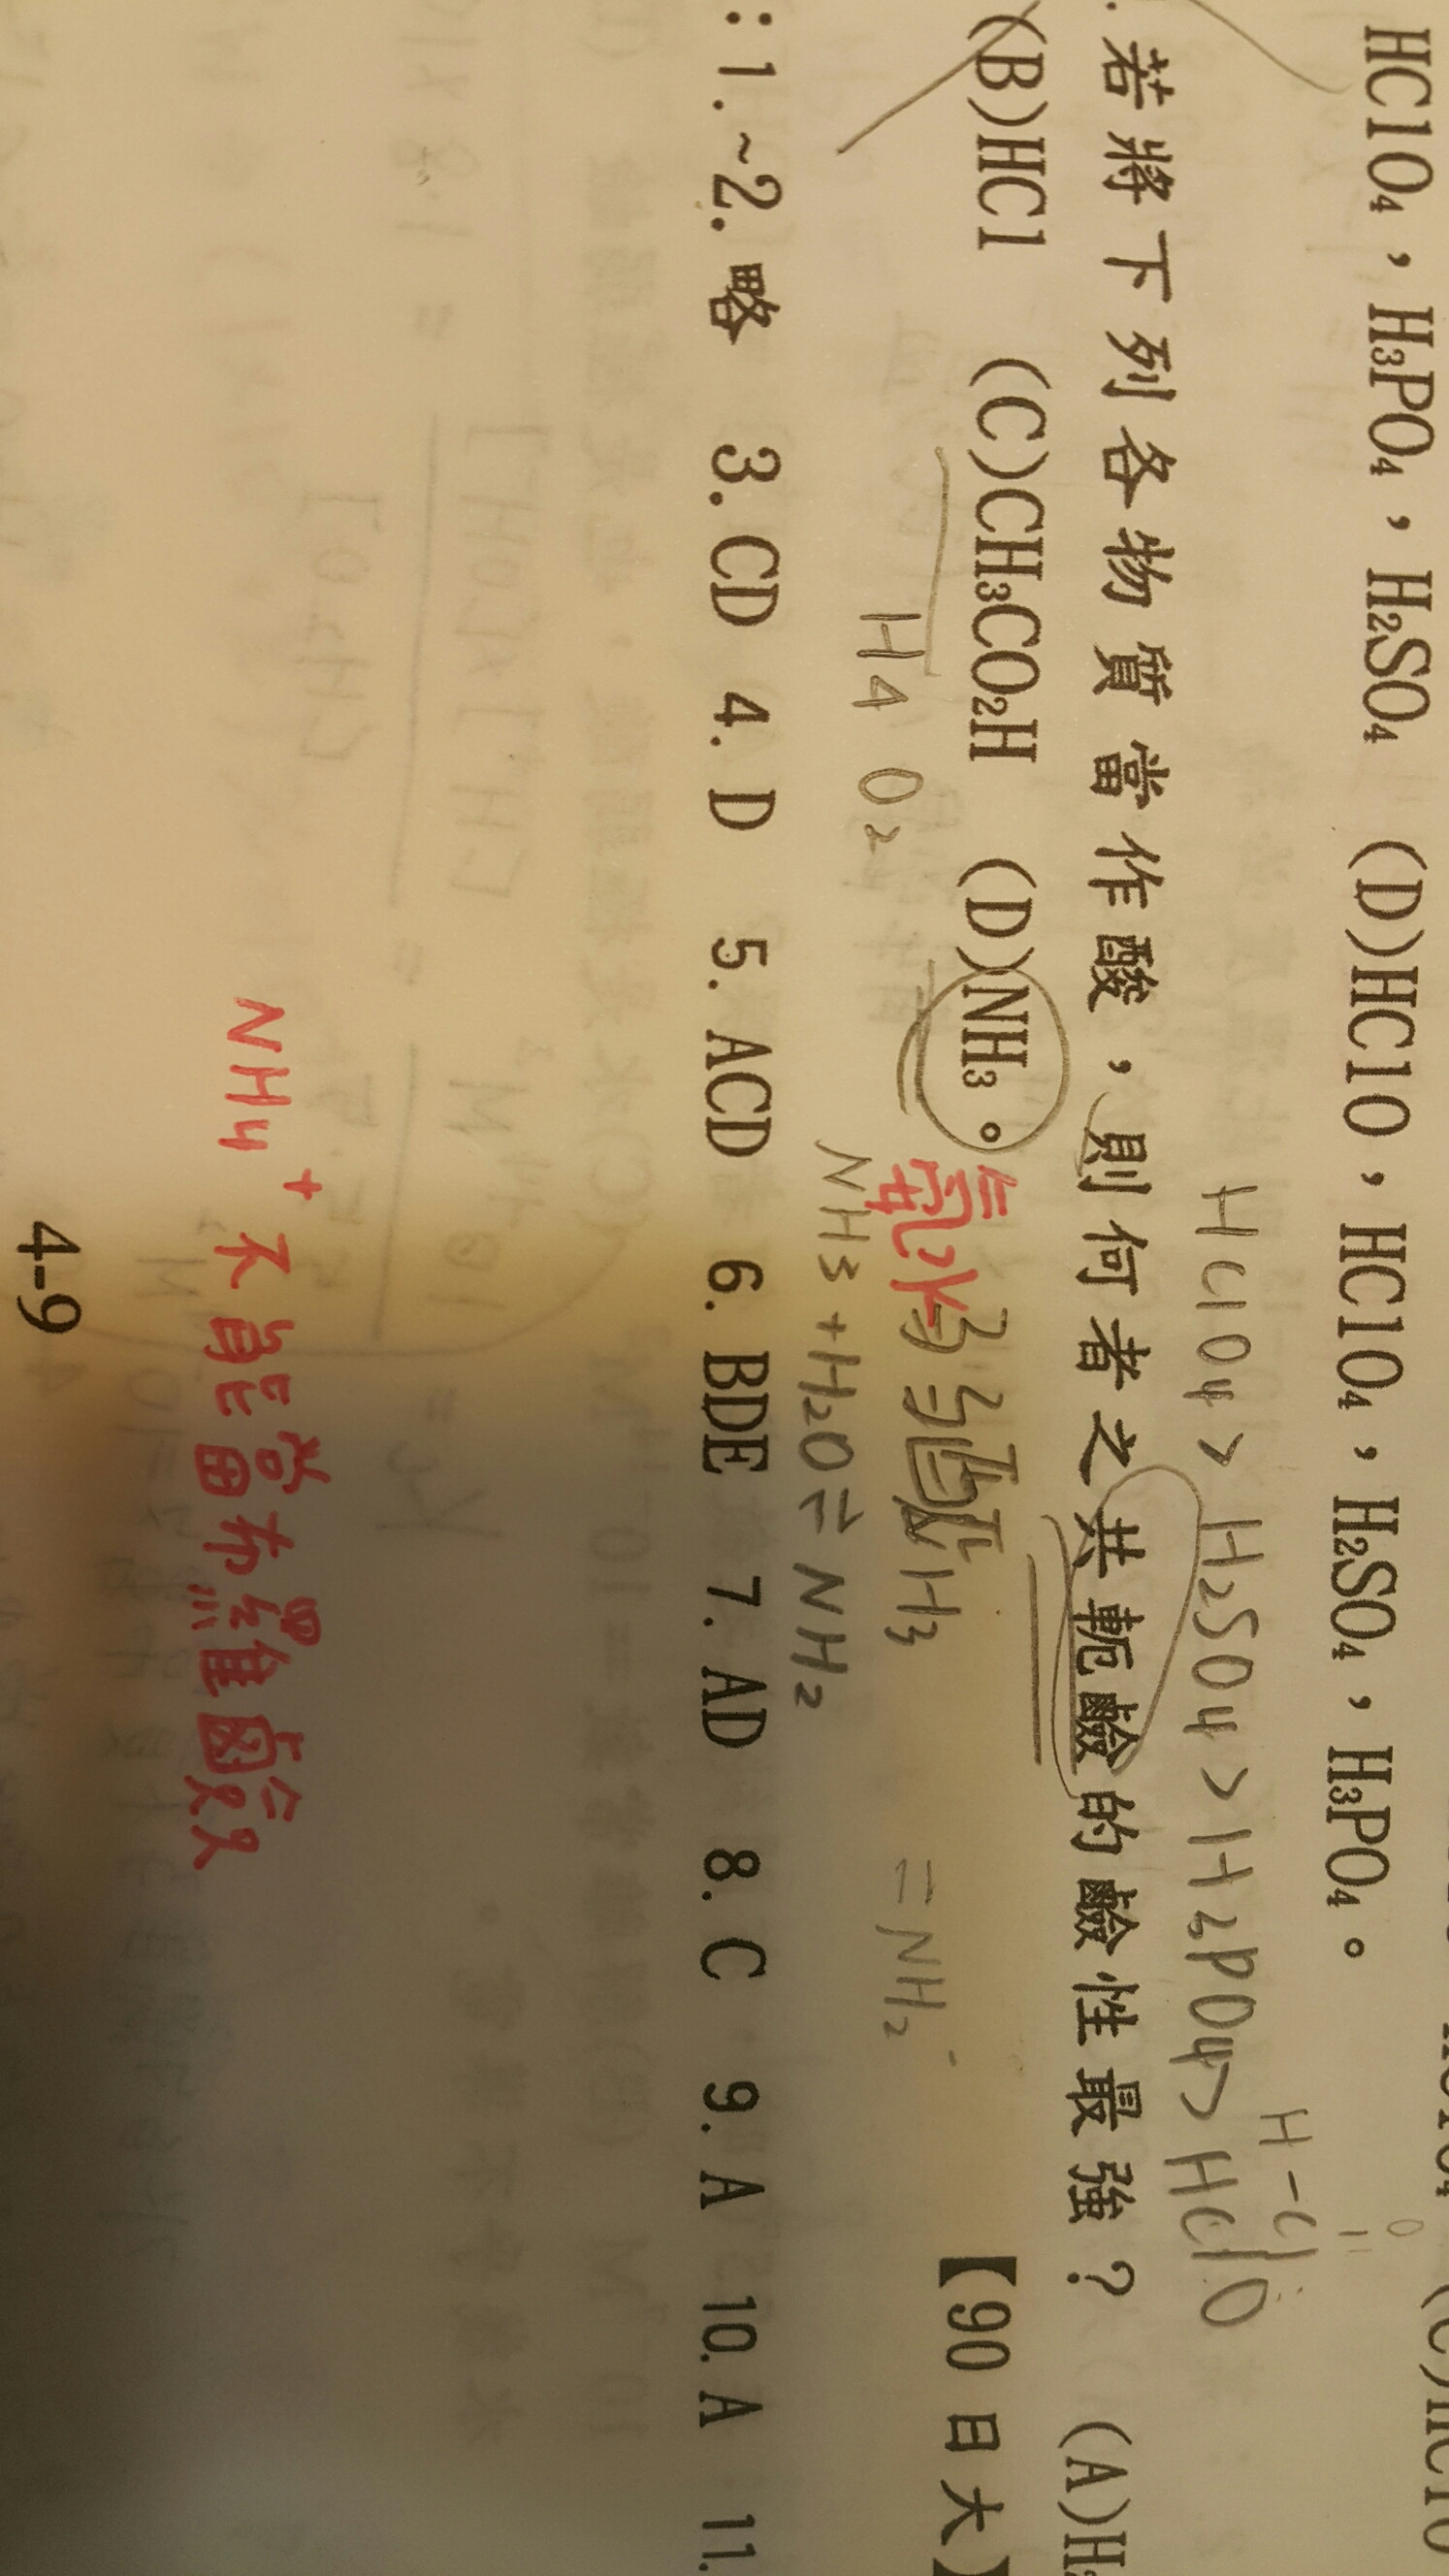 HClO₄，H₃PO₄，H₂SO₄ (D)HClO，HClO₄，H₂SO₄，H₃PO₄。
H-Cl
O
HClO₄ > H₂SO₄ > H₃PO₄ > HClO
若將下列各物質當作酸，則何者之共軛鹼的鹼性最強？ (A)H
(B)HCl (C)CH₃CO₂H (D)NH₃。 【90 日大】
氨水
H₄ O₂ H₃ = NH₂
NH₃ + H₂O ⇌ NH₂
：1.~2.略 3.CD 4.D 5.ACD 6.BDE 7.AD 8.C 9.A 10.A 11.
NH₄⁺ 不能當布羅鹼
4-9